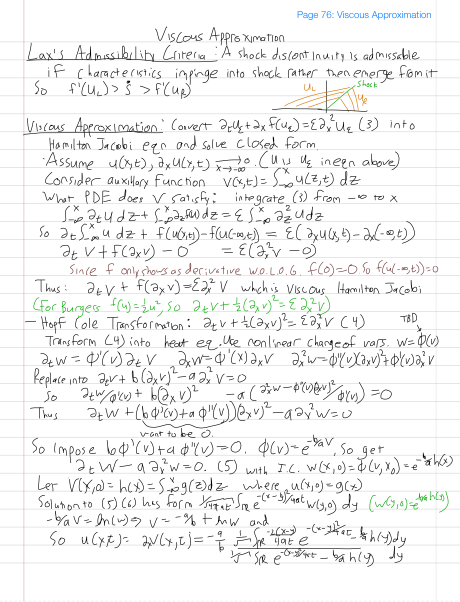 Page 76: Viscous Approximation
Viscous Approximation
Lax's Admissibility Criteria: A shock discontinuity is admissable
if characteristics impinge into shock rather then emerge from it
So f'(u_L) > ṡ > f'(u_R)
shock
u_L
u_R
Viscous Approximation: Convert ∂_t u_ε + ∂_x f(u_ε) = ε∂_x² u_ε (3) into
Hamilton Jacobi eqn and solve closed form
- Assume u(x,t), ∂_x u(x,t) → 0 x→-∞ (u is u_ε in eqn above)
Consider auxillary function v(x,t) = ∫_{-∞}^x u(z,t) dz
What PDE does v satisfy: integrate (3) from -∞ to x
∫_{-∞}^x ∂_t u dz + ∫_{-∞}^x ∂_z f(u) dz = ε ∫_{-∞}^x ∂_z² u dz
So ∂_t ∫_{-∞}^x u dz + f(u(x,t)) - f(u(-∞,t)) = ε(∂_x u(x,t) - ∂_x(-∞,t))
∂_t v + f(∂_x v) - 0 = ε(∂_x² v - 0)
Since f only shows as derivative w.o.l.o.g. f(0)=0. So f(u(-∞,t))=0
Thus: ∂_t v + f(∂_x v) = ε∂_x² v which is viscous Hamilton Jacobi
(For Burgers f(u)=½u², so ∂_t v + ½(∂_x v)² = ε∂_x² v)
- Hopf Cole Transformation: ∂_t v + ½(∂_x v)² = ε∂_x² v (4)
TBD
Transform (4) into heat eq. Use nonlinear change of vars. w = Φ(v)
∂_t w = Φ'(v) ∂_t v ∂_x w = Φ'(x) ∂_x v ∂_x² w = Φ''(v)(∂_x v)² + Φ'(v)∂_x² v
Replace into ∂_t v + b(∂_x v)² - a∂_x² v = 0
So ∂_t w/Φ'(v) + b(∂_x v)² - a(∂_x² w - Φ''(v)(∂_x v)²/Φ'(v)) = 0
Thus ∂_t w + (bΦ'(v) + aΦ''(v))(∂_x v)² - a∂_x² w = 0
want to be 0.
So impose bΦ'(v) + aΦ''(v) = 0. Φ(v) = e^{-b/a v}, So get
∂_t w - a∂_x² w = 0. (5) with I.C. w(x,0) = Φ(v(x,0)) = e^{-b/a h(x)}
Let v(x,0) = h(x) = ∫_{-∞}^x g(z) dz where u(x,0) = g(x)
Solution to (5)(6) has form 1/√4πat ∫_ℝ e^{-(x-y)²/4at} w(y,0) dy (w(y,0) = e^{-b/a h(y)})
-b/a v = ln(w) ⇒ v = -a/b ln w and
So u(x,t) = ∂v(x,t) = -a/b 1/√ ∫_ℝ -2(x-y)/4at e^{-(x-y)²/4at - b/a h(y)} dy
1/√ ∫_ℝ e^{-(x-y)²/4at - b/a h(y)} dy